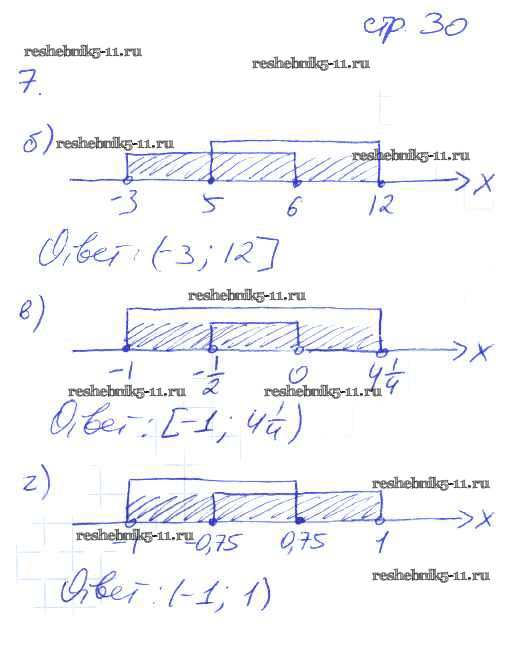 стр. 30
reshebnik5-11.ru
reshebnik5-11.ru
7.
б) reshebnik5-11.ru
reshebnik5-11.ru
-3 5 6 12 X
Ответ: (-3; 12]
reshebnik5-11.ru
в)
-1 -1/2 0 4 1/4 X
reshebnik5-11.ru reshebnik5-11.ru
Ответ: [-1; 4 1/4)
г)
reshebnik5-11.ru
reshebnik5-11.ru
-1 -0,75 0,75 1 X
reshebnik5-11.ru
Ответ: (-1; 1)